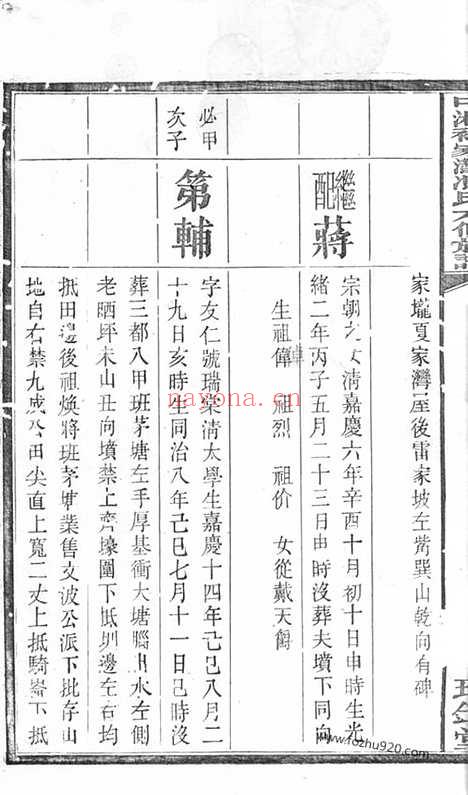 家壠夏家灣屋後雷家坡左巽山乾向有碑
繼配蔣
宗朝之女清嘉慶六年辛酉十月初十日申時生光
緒二年丙子五月二十三日由時沒葬夫墳下同向
生祖偉 祖烈 祖价 女從戴天爵
必甲
次子
第輔
字友仁號瑞榮清太學生嘉慶十四年己巳八月二
十九日亥時生同治八年己巳七月十一日巳時沒
葬三都八甲班茅塘左手厚基衝大塘腦出水左側
老晒坪未山丑向墳禁上齊壕圍下抵圳邊左右均
抵田邊後祖煥將班茅塘業售支波公派下批存山
地自右禁九成田尖直上寬二丈上抵騎崙下抵
nayona.cn
www.fozhu920.com